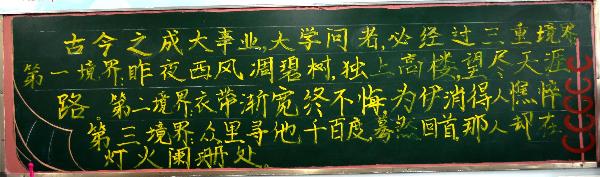 古今之成大事业,大学问者,必经过三重境界
第一境界:昨夜西风凋碧树,独上高楼,望尽天涯
路。第二境界:衣带渐宽终不悔,为伊消得人憔悴
第三境界:众里寻他千百度,蓦然回首,那人却在
灯火阑珊处。